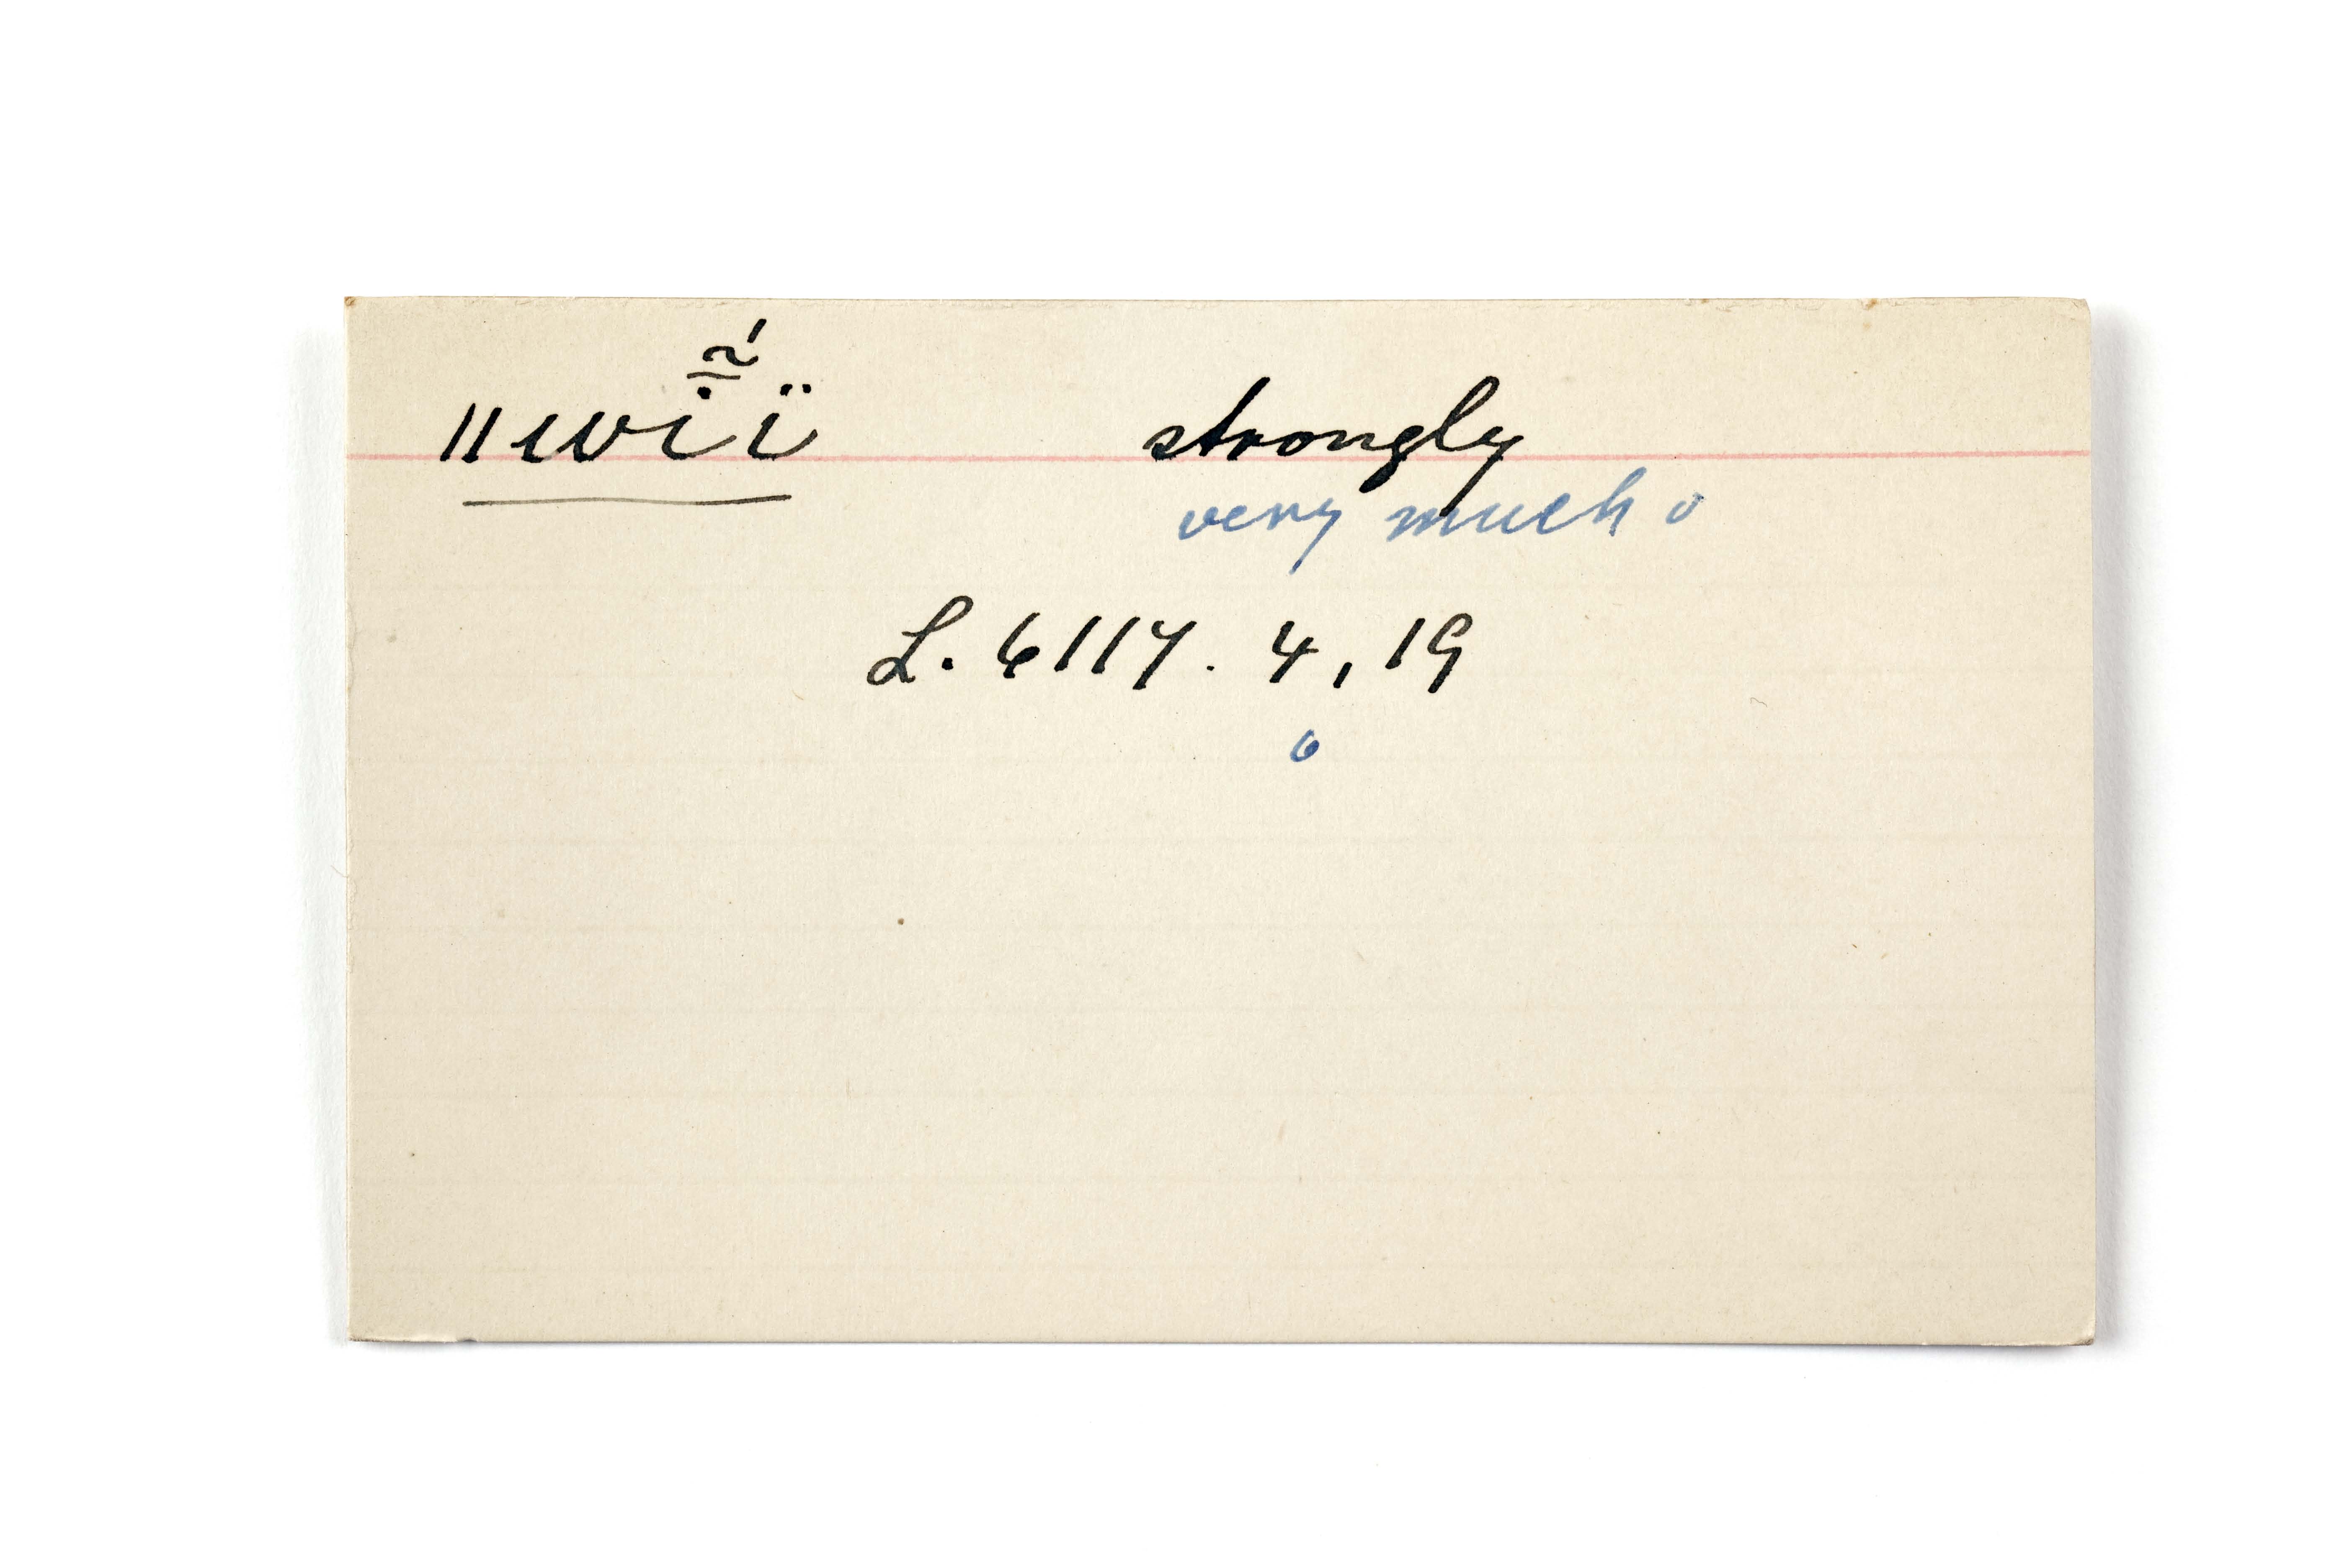 ǁwĩ̄́ï strongly
very much o
L. 6117. 4, 19
6